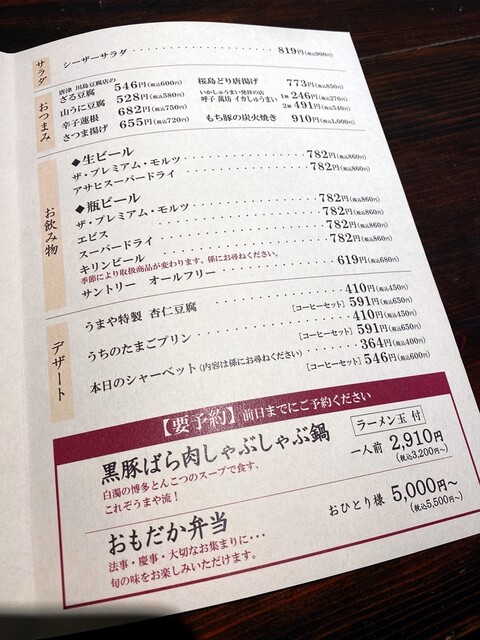 サラダ
シーザーサラダ 819円(税込900円)
おつまみ
唐津 川島豆腐店の
ざる豆腐 546円(税込600円)
山うに豆腐 528円(税込580円)
辛子蓮根 682円(税込750円)
さつま揚げ 655円(税込720円)
桜島どり唐揚げ 773円(税込850円)
いかしゅうまい発祥の店
呼子 萬坊 イカしゅうまい 1個 246円(税込270円)
2個 491円(税込540円)
もち豚の炭火焼き 910円(税込1,000円)
お飲み物
◆生ビール
ザ・プレミアム・モルツ 782円(税込860円)
アサヒスーパードライ 782円(税込860円)
◆瓶ビール
ザ・プレミアム・モルツ 782円(税込860円)
エビス 782円(税込860円)
スーパードライ 782円(税込860円)
キリンビール 782円(税込860円)
季節により取扱商品が変わります。係にお尋ねください。
サントリー オールフリー 619円(税込680円)
デザート
うまや特製 杏仁豆腐 410円(税込450円)
[コーヒーセット] 591円(税込650円)
うちのたまごプリン 410円(税込450円)
[コーヒーセット] 591円(税込650円)
本日のシャーベット(内容は係にお尋ねください) 364円(税込400円)
[コーヒーセット] 546円(税込600円)
【要予約】前日までにご予約ください
黒豚ばら肉しゃぶしゃぶ鍋 ラーメン玉 付
一人前 2,910円
(税込3,200円〜)
白濁の博多とんこつのスープで食す、
これぞうまや流！
おもだか弁当 おひとり様 5,000円〜
(税込5,500円〜)
法事・慶事・大切なお集まりに・・・
旬の味をお楽しみいただけます。